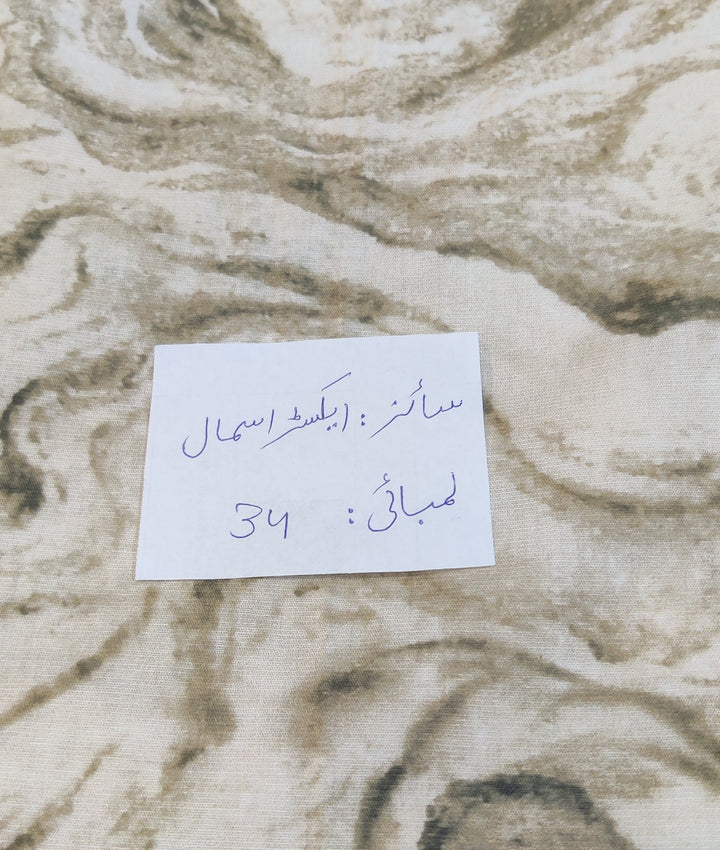 سائز: ایکسٹرا سمال
لمبائی: 34